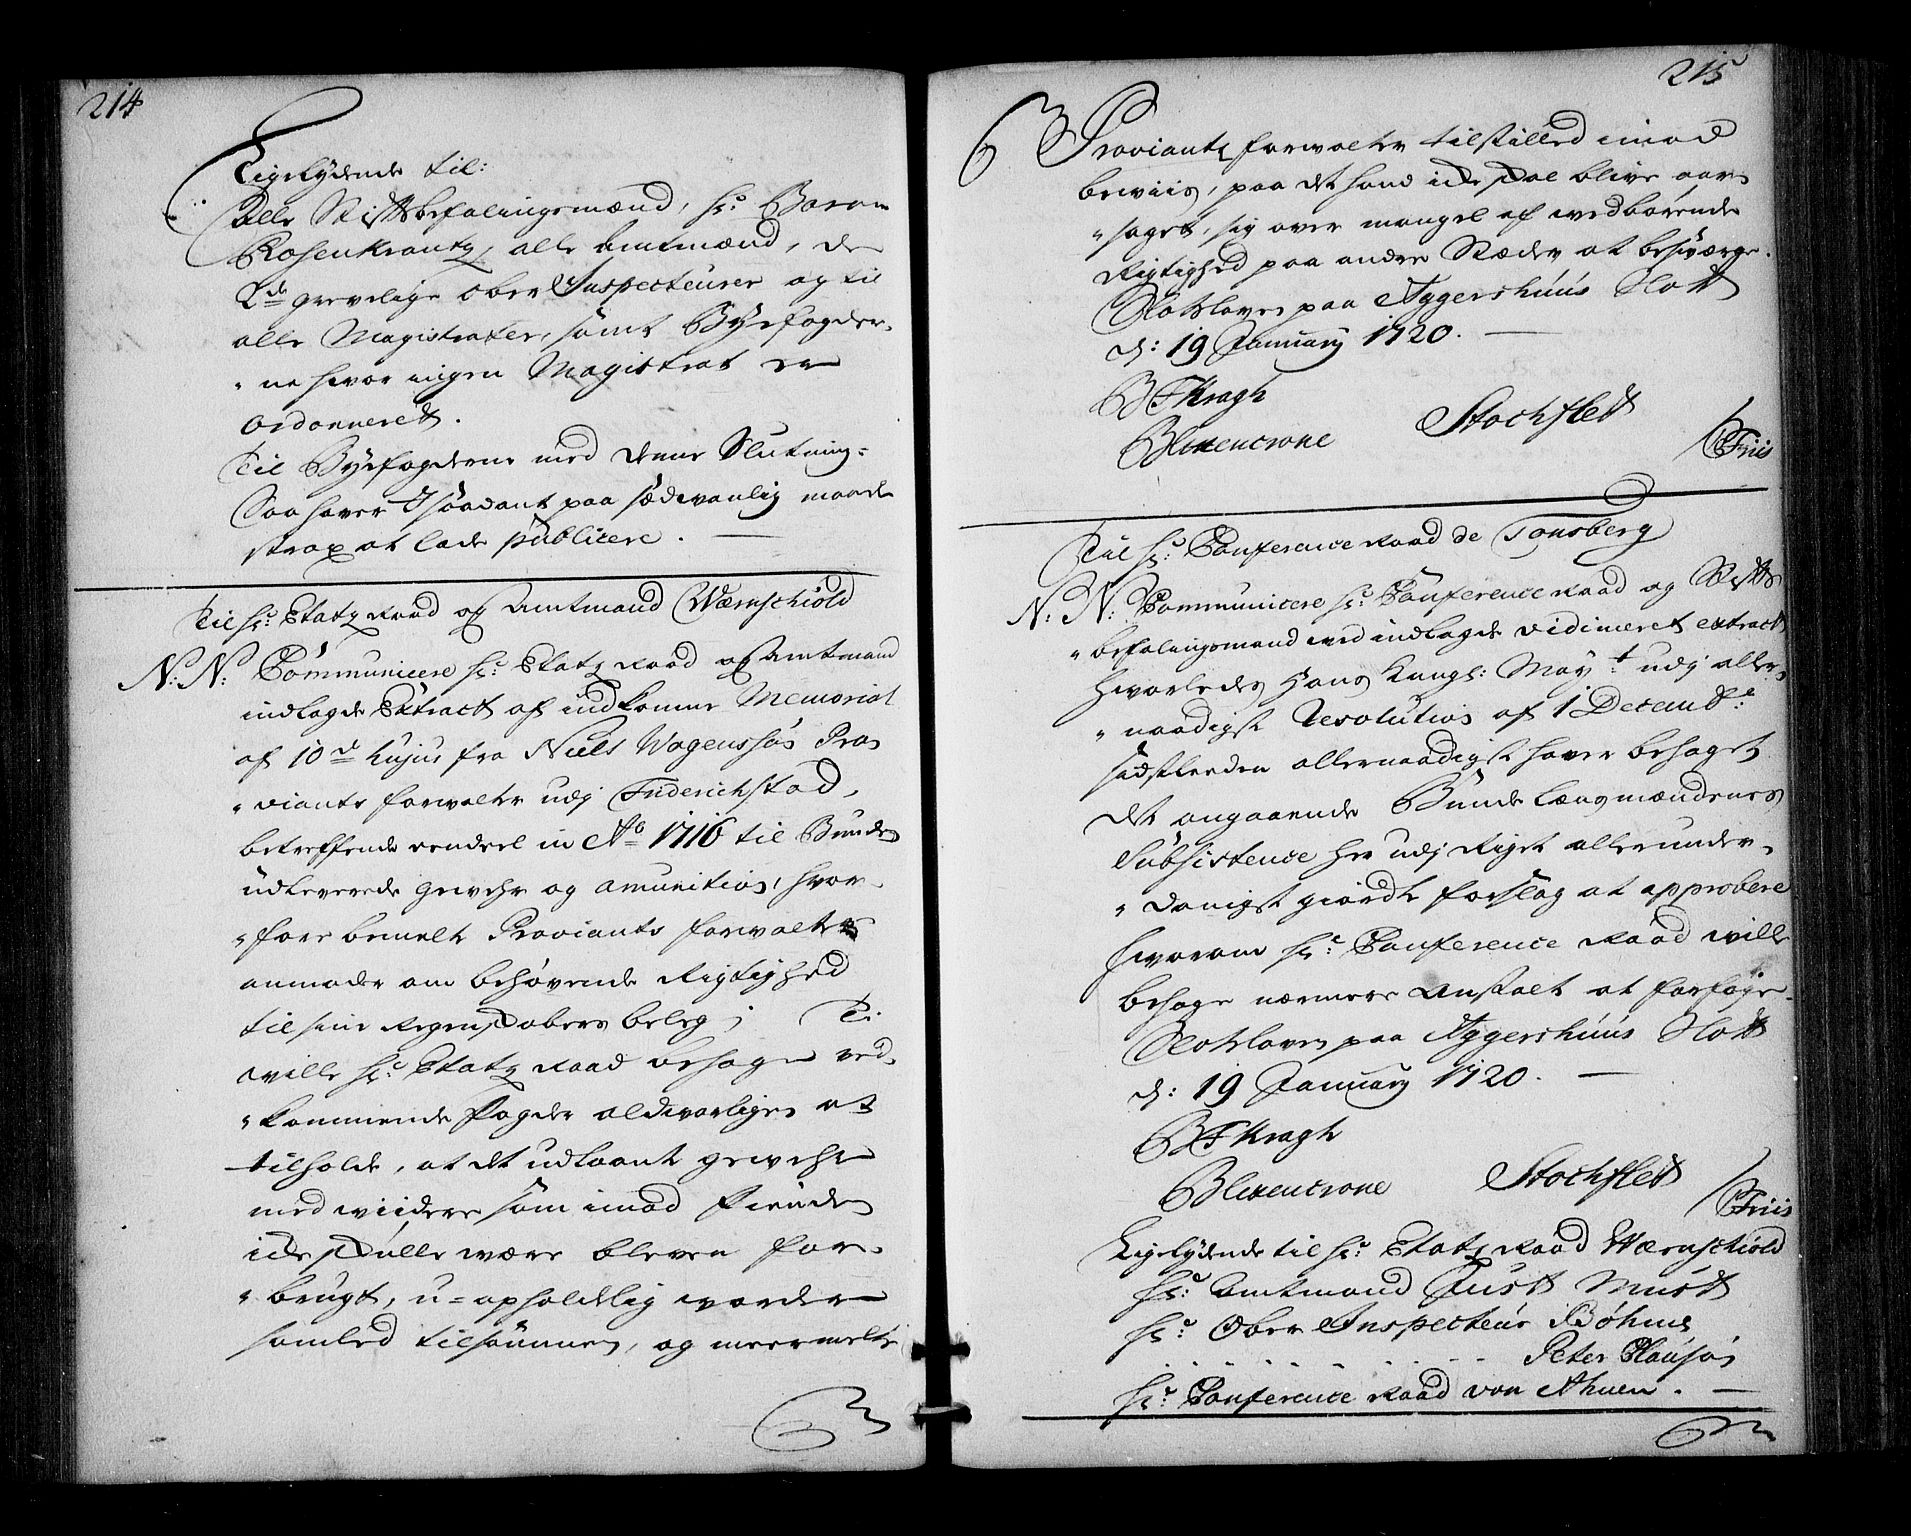 214
Ligelydende til:
Alle Stifftsbefalingsmænd, Hr: Baron
Rosenkrantz, alle Amtmænd, de
2de grevelige Ober Inspecteurer og til
alle Magistrater, samt Byefogder-
"ne hvor ingen Magistrat er
ordonneret.
Til Byefogderne med denne Slutning:
Saa haver I saadant paa sædvanlig maade
strax at lade publicere.
Til Hr: Etatz Raad og Amtmand Wærnschiold
N: N: Communicere Hr: Etatz Raad og Amtmand
indlagde Extract af indkomne Memorial
af 10de hujus fra Niels Wogenssøn Pro-
"viants forvalter udj Friderichstad,
betreffende eendeel in Ao 1716 til Bunder
udleverede gewehr og amunition, hvor-
"fore bemelte Proviants forvalter
anmoder om behøvende Rigtighed
til sine Regenskabers beleg; Ti
wille Hr: Etatz Raad behage ved-
"kommende Fogder alvorligen at
tilholde, at det udlaant gewehr
med widere som imod Fienden
icke skulle være bleven for-
"brugt, u-opholdelig vorder
samled tilsammen, og meermelte
215
Proviantz forvalter tilstilled imod
beviis, paa det hand icke skal blive aar-
"saget, sig over mangel af vedbørende
Rigtighed paa andre Stæder at besværge.
Slotzloven paa Aggershuus Slott
d: 19 January 1720.
B F Kragh
Blixencrone Stochflett
CFriis
Til Hr: Conference Raad de Tonsberg
N: N: Communicere Hr: Conference Raad og Stiffts
"befalingsmand ved indlagde vidimeret extract
hvorledes Hans Kongl: Mayt: udj aller-
"naadigst Resolution af 1 Decembr:
sidstleden allernaadigst haver behaget
det angaaende Bunde Lænsmændenes
Subsistence her udj Riget allerunder-
"danigst giordte forslag at approbere
hvorom Hr: Conference Raad wille
behage nærmere Anstalt at forføye.
Slotzloven paa Aggershuus Slott
d: 19 January 1720.
B F Kragh
Blixencrone Stochflett
CFriis
Ligelydende til Hr: Etatz Raad Wærnschiold
Hr: Amtmand Just Must
Hr: Ober Inspecteur Bøhme
Peter Clausøn
Hr: Conference Raad von Ahnen.